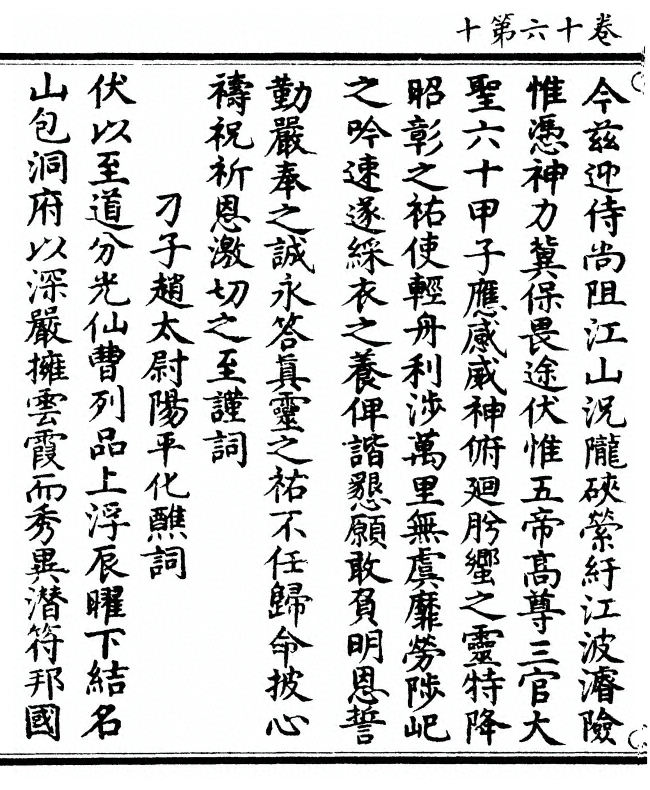 卷十六第十
今茲迎侍尚阻江山況隴硤縈紆江波濬險
惟憑神力冀保畏途伏惟五帝高尊三官大
聖六十甲子應感威神俯廻肸蠁之靈特降
昭彰之祐使輕舟利涉萬里無虞靡勞陟屺
之吟速遂綵衣之養俾諧懇願敢負明恩誓
勤嚴奉之誠永答真靈之祐不任歸命披心
禱祝祈恩激切之至謹詞
刁子趙太尉陽平化醮詞
伏以至道分光仙曹列品上浮辰曜下結名
山包洞府以深嚴擁雲霞而秀異潛符邦國